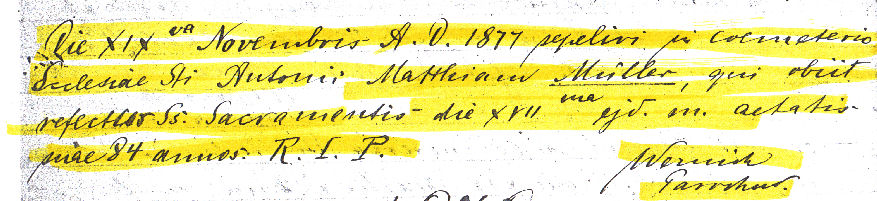 Die XIX va Novembris A. D. 1877 sepelivi in coemeterio
Ecclesiae Sti Antonii Matthiam Müller, qui obiit
refectus Ss: Sacramentis die XVII ma ejd. m. aetatis
suae 84 annos. R. I. P.
Wernich
Parochus.